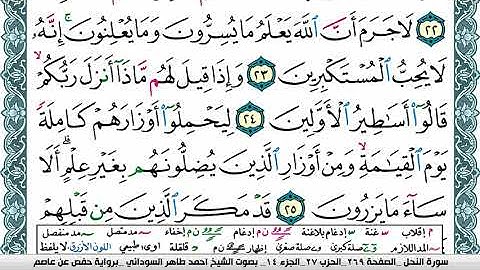 ٢٢ لَا جَرَمَ أَنَّ ٱللَّهَ يَعْلَمُ مَا يُسِرُّونَ وَمَا يُعْلِنُونَ ۚ إِنَّهُۥ
لَا يُحِبُّ ٱلْمُسْتَكْبِرِينَ ٢٣ وَإِذَا قِيلَ لَهُم مَّاذَآ أَنزَلَ رَبُّكُمْ ۙ
قَالُوٓا۟ أَسَـٰطِيرُ ٱلْأَوَّلِينَ ٢٤ لِيَحْمِلُوٓا۟ أَوْزَارَهُمْ كَامِلَةً
يَوْمَ ٱلْقِيَـٰمَةِ ۙ وَمِنْ أَوْزَارِ ٱلَّذِينَ يُضِلُّونَهُم بِغَيْرِ عِلْمٍ ۗ أَلَا
سَآءَ مَا يَزِرُونَ ٢٥ قَدْ مَكَرَ ٱلَّذِينَ مِن قَبْلِهِمْ
م إقلاب غنة إدغام بلاغنة إدغام إخفاء مد متصل مد منفصل
المد اللازم صلة كبرى وصلة صغرى إظهار ن م قلقلة أوى طبيعي اللون الأزرق لا يلفظ
سورة النحل الصفحة ٢٦٩ الحزب ٢٧ الجزء ١٤ بصوت الشيخ احمد طاهر السوداني برواية حفص عن عاصم